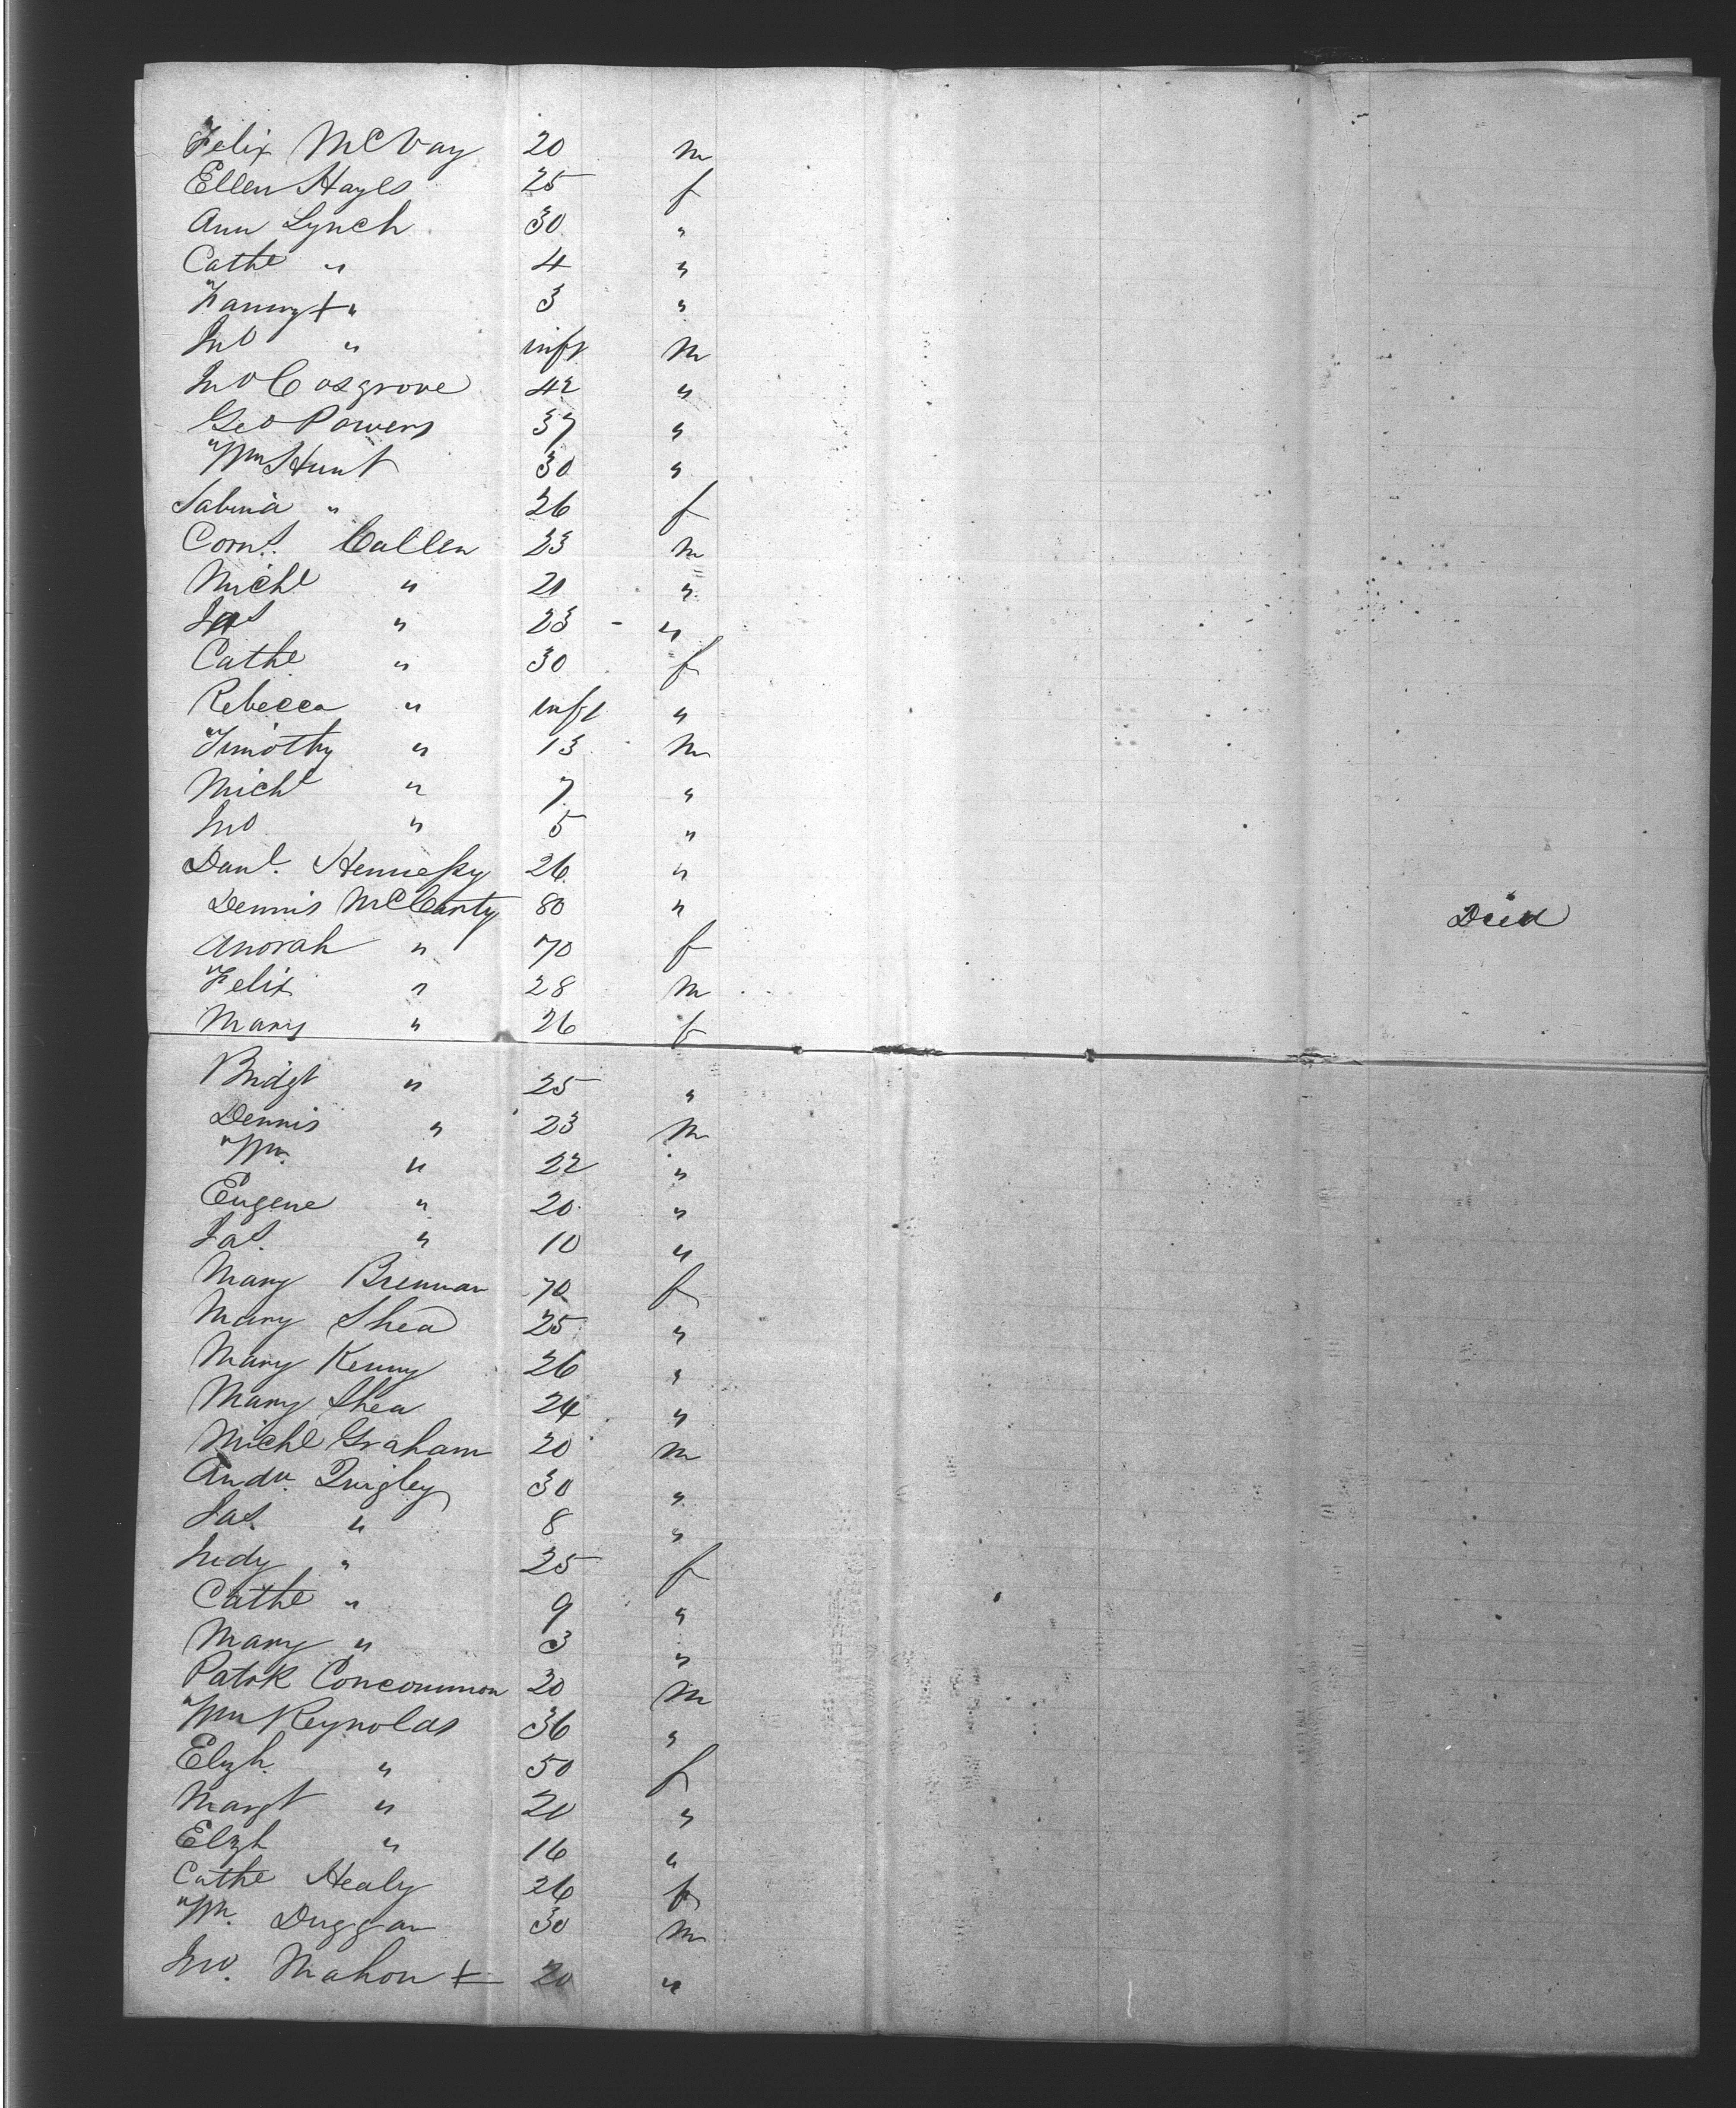 Felix McVay 20 m
Ellen Hayes 25 f
Ann Lynch 30 "
Cathe " 4 "
Fanny + " 3 "
Jno " inft m
Jno Cosgrove 42 "
Geo Powers 37 "
Wm Hunt 30 "
Sabina " 26 f
Corns. Callen 23 m
Michl " 21 "
Jas " 23 - "
Cathe " 30 f
Rebecca " inft "
Timothy " 13 m
Michl " 7 "
Jno " 5 "
Danl. Hennessy 26 "
Dennis McCarty 80 " Died
Anorah " 70 f
Felix " 28 m
Mary " 26 f
Bridgt " 25 "
Dennis " 23 m
Wm. " 22 "
Eugene " 20 "
Jas. " 10 "
Mary Brennan 70 f
Mary Shea 25 "
Mary Kenny 26 "
Mary Shea 24 "
Michl Graham 20 m
Andw. Quigley 30 "
Jas. " 8 "
Judy " 25 f
Cathe " 9 "
Mary " 3 "
Patrk Concommon 20 m
Wm Reynolds 36 "
Elzh. " 50 f
Margt " 20 "
Elzh " 16 "
Cathe Healy 26 f
Wm. Duggan 30 m
Jno. Mahon + 20 "